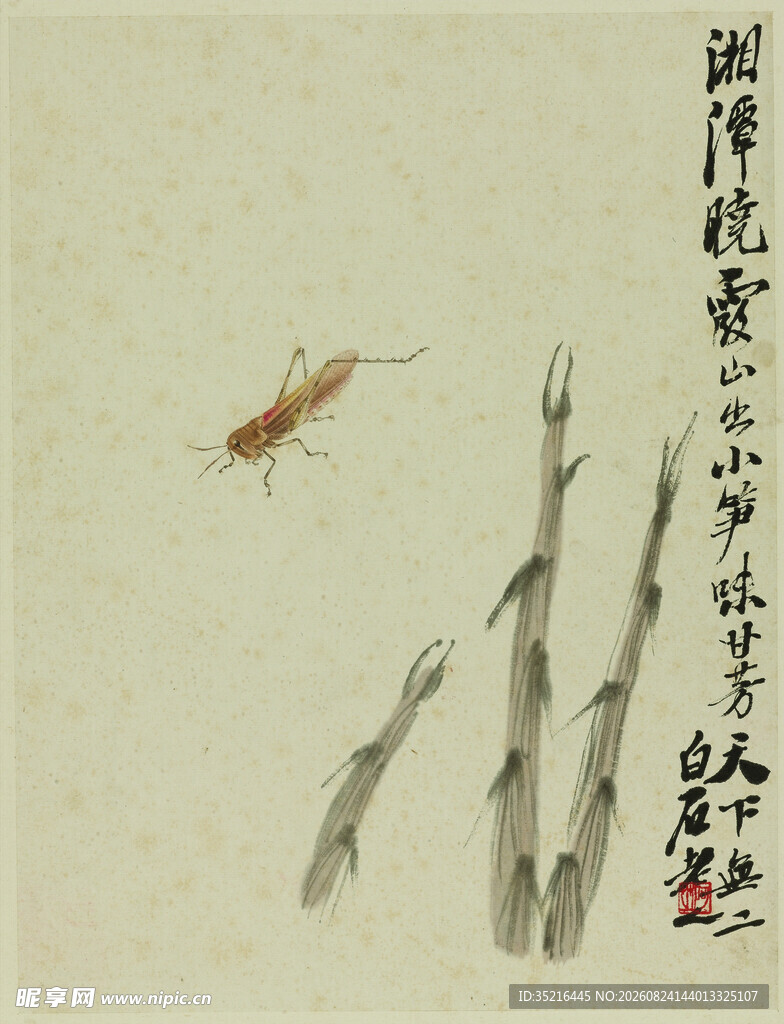 湘潭曉霞山出小笋味甘芳天下無二
白石老人
昵享网 www.nipic.cn
ID:35216445 NO:20260824144013325107